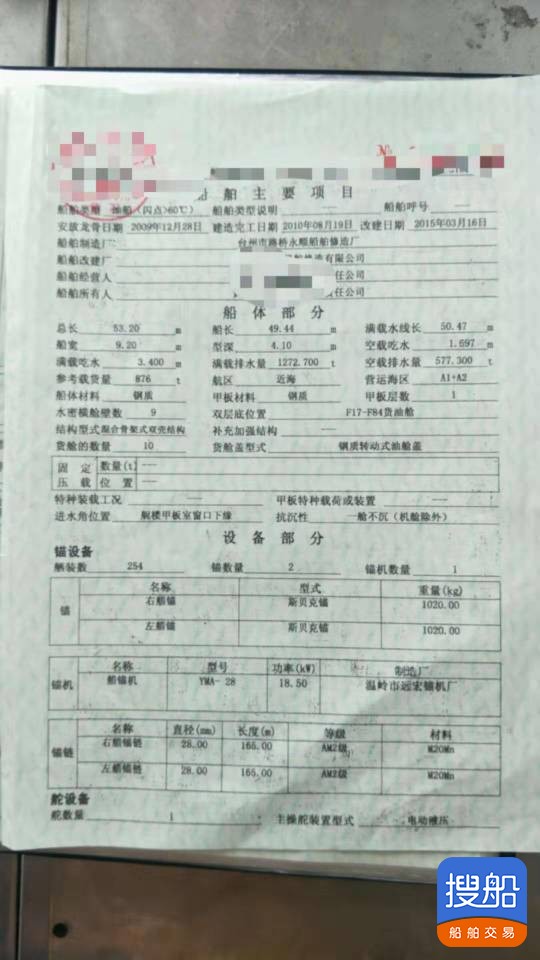 船舶主要项目
船舶类型 油船(闪点>60℃) 船舶类型说明 —— 船舶呼号 ——
安放龙骨日期 2009年12月28日 建造完工日期 2010年08月19日 改建日期 2015年03月16日
船舶制造厂 台州市路桥永顺船舶修造厂
船舶改建厂 船舶修造有限公司
船舶经营人 任公司
船舶所有人 责任公司
船体部分
总长 53.20 m 船长 49.44 m 满载水线长 50.47 m
船宽 9.20 m 型深 4.10 m 空载吃水 1.697 m
满载吃水 3.400 m 满载排水量 1272.700 t 空载排水量 577.300 t
参考载货量 876 t 航区 近海 营运海区 A1+A2
船体材料 钢质 甲板材料 钢质 甲板层数 1
水密横舱壁数 9 双层底位置 F17-F84货油舱
结构型式 混合骨架式双壳结构 补充加强结构 ——
货舱的数量 10 货舱盖型式 钢质转动式油舱盖
固定压载 数量(t) ——
位置 ——
特种装载工况 —— 甲板特种载荷或装置 ——
进水角位置 艉楼甲板室窗口下缘 抗沉性 一舱不沉(机舱除外)
设备部分
锚设备
舾装数 254 锚数量 2 锚机数量 1
锚 名称 型式 重量(kg)
右艏锚 斯贝克锚 1020.00
左艏锚 斯贝克锚 1020.00
锚机 名称 型号 功率(kW) 制造厂
船锚机 YMA-28 18.50 温岭市远宏锚机厂
锚链 名称 直径(mm) 长度(m) 等级 材料
右艏锚链 28.00 165.00 AM2级 M20Mn
左艏锚链 28.00 165.00 AM2级 M20Mn
舵设备
舵数量 1 主操舵装置型式 电动液压
搜船
船舶交易